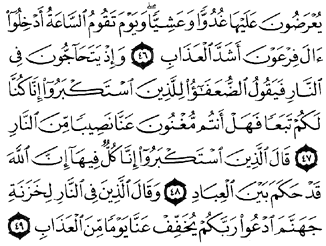 يُعْرَضُونَ عَلَيْهَا غُدُوًّا وَعَشِيًّا ۖ وَيَوْمَ تَقُومُ ٱلسَّاعَةُ أَدْخِلُوٓا۟
ءَالَ فِرْعَوْنَ أَشَدَّ ٱلْعَذَابِ ٤٦ وَإِذْ يَتَحَآجُّونَ فِى
ٱلنَّارِ فَيَقُولُ ٱلضُّعَفَٰٓؤُا۟ لِلَّذِينَ ٱسْتَكْبَرُوٓا۟ إِنَّا كُنَّا
لَكُمْ تَبَعًا فَهَلْ أَنتُم مُّغْنُونَ عَنَّا نَصِيبًا مِّنَ ٱلنَّارِ
٤٧ قَالَ ٱلَّذِينَ ٱسْتَكْبَرُوٓا۟ إِنَّا كُلٌّ فِيهَآ إِنَّ ٱللَّهَ
قَدْ حَكَمَ بَيْنَ ٱلْعِبَادِ ٤٨ وَقَالَ ٱلَّذِينَ فِى ٱلنَّارِ لِخَزَنَةِ
جَهَنَّمَ ٱدْعُوا۟ رَبَّكُمْ يُخَفِّفْ عَنَّا يَوْمًا مِّنَ ٱلْعَذَابِ ٤٩